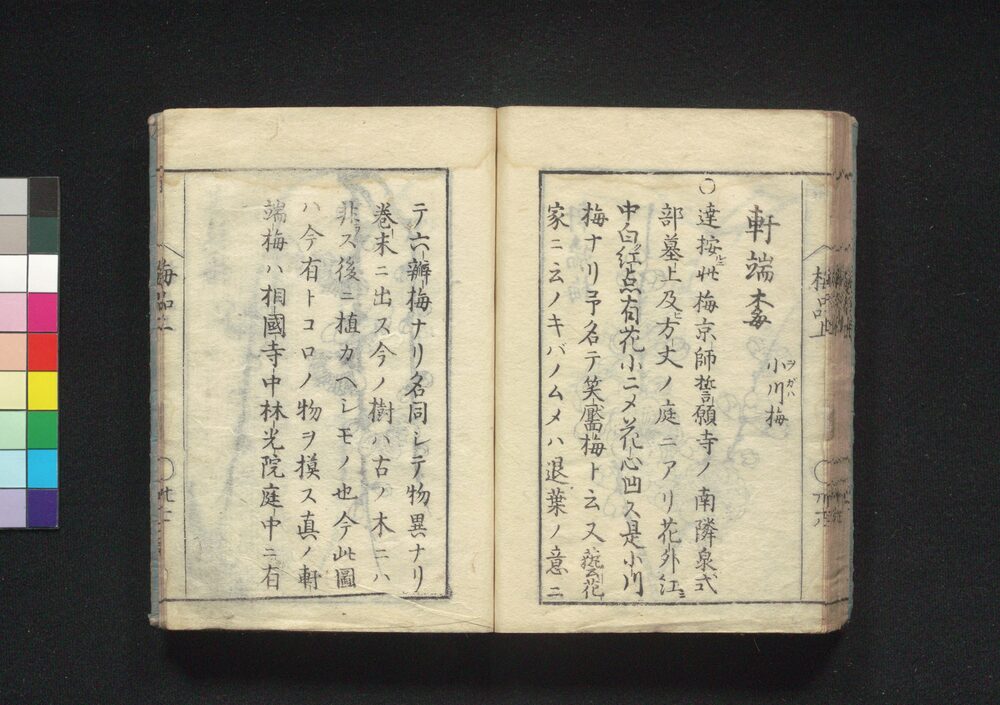 軒端梅
小川梅
ヲガハ
〇達按ルニ此梅京師誓願寺ノ南隣泉式
部墓上及ヒ方丈ノ庭ニアリ花外紅ニ
中白紅点有花小ニメ花心凹ス是小川
梅ナリ予名テ笑靨梅ト云又藝花
家ニ云ノキバノムメハ退葉ノ意ニ
テ六瓣梅ナリ名同シテ物異ナリ
巻末ニ出ス今ノ樹ハ古ノ木ニハ
非ス後ニ植カヘシモノ也今此圖
ハ今有トコロノ物ヲ模ス真ノ軒
端梅ハ相國寺中林光院庭中ニ有
梅品上
梅品上